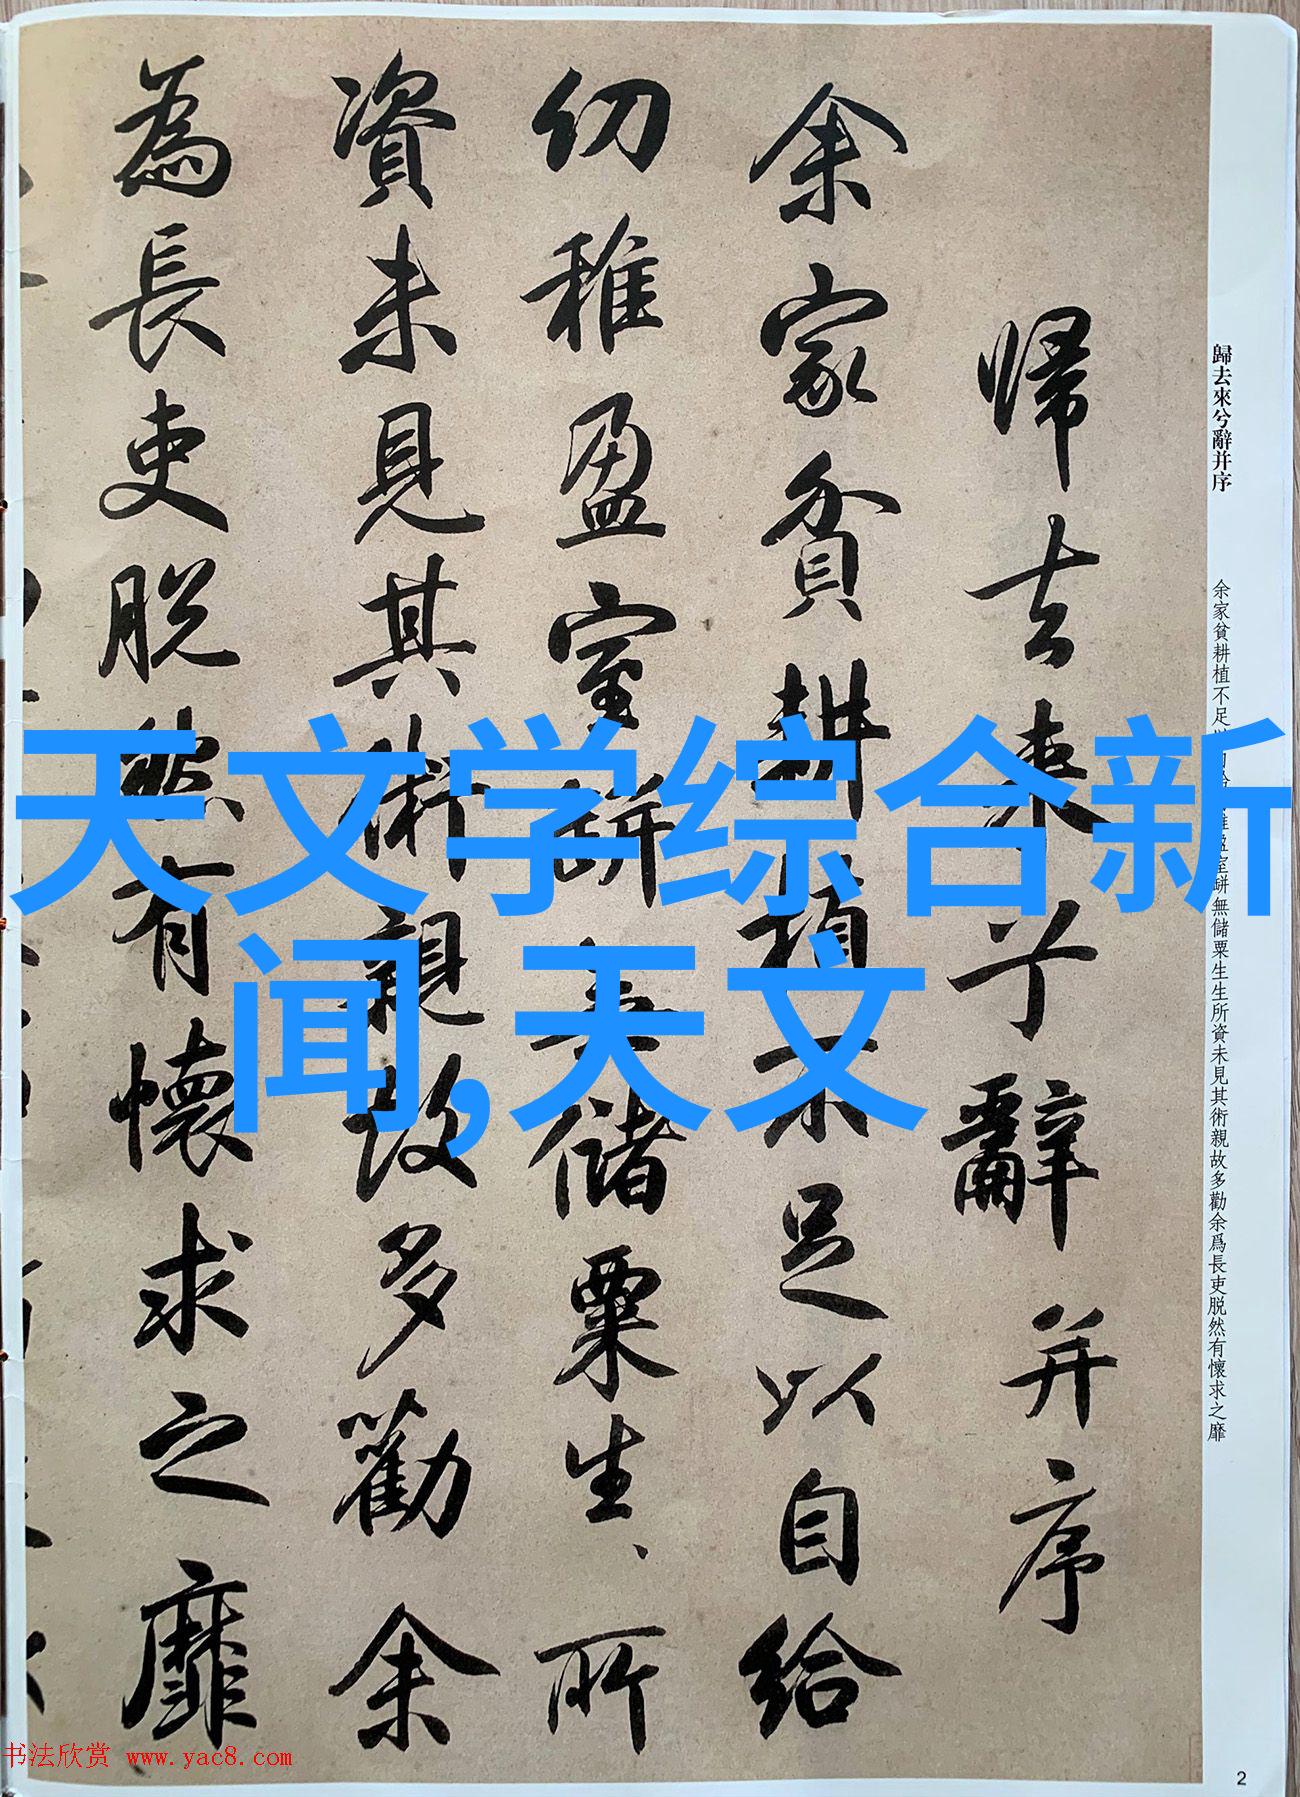 歸去來兮辭并序
余家貧耕植不足以自給幼稚盈室缾無儲粟生生所資未見其術親故多勸余爲長吏脱然有懷求之靡
歸去來兮辭并序
余家貧耕植不足以自給
幼稚盈室缾無儲粟生、所
資未見其術親故多勸余
為長吏脱然有懷求之靡
天文学综合新
闻,天文
书法欣赏 www.yac8.com
2